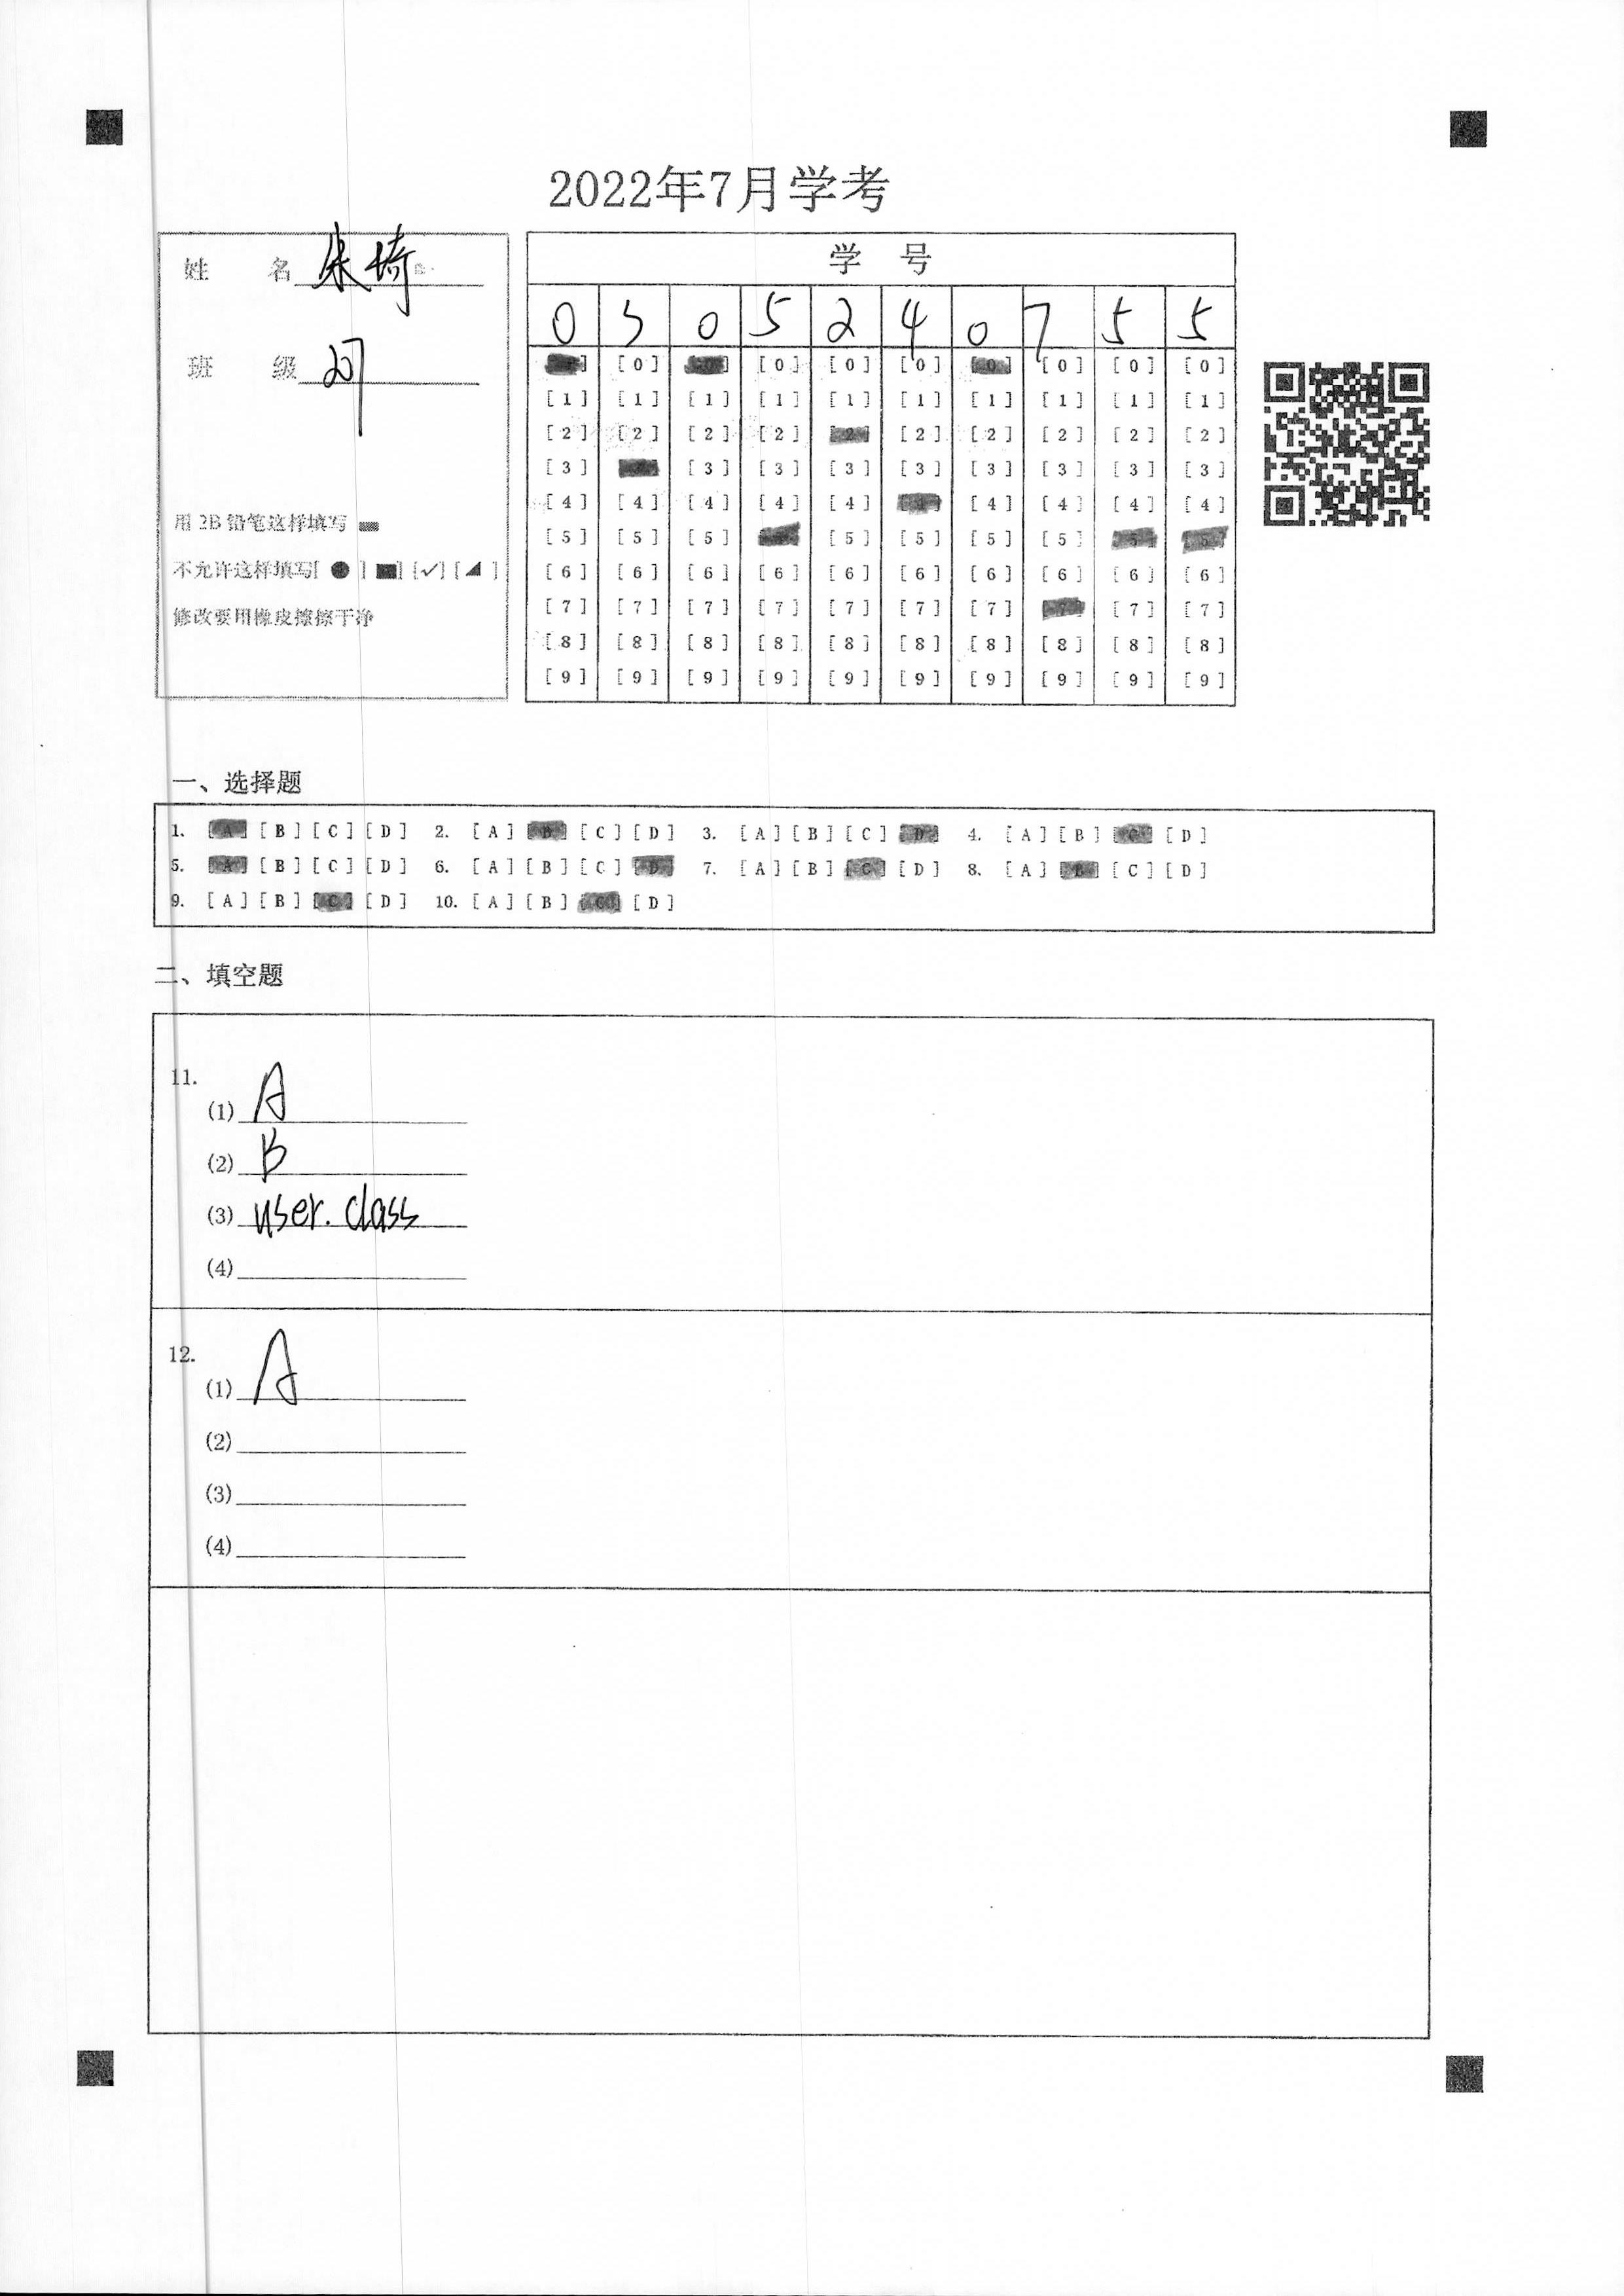 2022年7月学考
姓 名 朱埼
班 级 207
用 2B 铅笔这样填写
不允许这样填写[ ● ] [■] [✓] [◢ ]
修改要用橡皮擦擦干净
学 号
0 3 0 5 2 4 0 7 5 5
[0] [0] [0] [0] [0] [0] [0] [0]
[1] [1] [1] [1] [1] [1] [1] [1] [1] [1]
[2] [2] [2] [2] [2] [2] [2] [2] [2] [2]
[3] [3] [3] [3] [3] [3] [3] [3] [3]
[4] [4] [4] [4] [4] [4] [4] [4] [4]
[5] [5] [5] [5] [5] [5] [5] [5] [5]
[6] [6] [6] [6] [6] [6] [6] [6] [6] [6]
[7] [7] [7] [7] [7] [7] [7] [7] [7] [7]
[8] [8] [8] [8] [8] [8] [8] [8] [8] [8]
[9] [9] [9] [9] [9] [9] [9] [9] [9] [9]
一、选择题
1. [A] [B] [C] [D] 2. [A] [B] [C] [D] 3. [A] [B] [C] [D] 4. [A] [B] [C] [D]
5. [A] [B] [C] [D] 6. [A] [B] [C] [D] 7. [A] [B] [C] [D] 8. [A] [B] [C] [D]
9. [A] [B] [C] [D] 10. [A] [B] [C] [D]
二、填空题
11.
(1) A
(2) B
(3) user. class
(4)
12.
(1) A
(2)
(3)
(4)